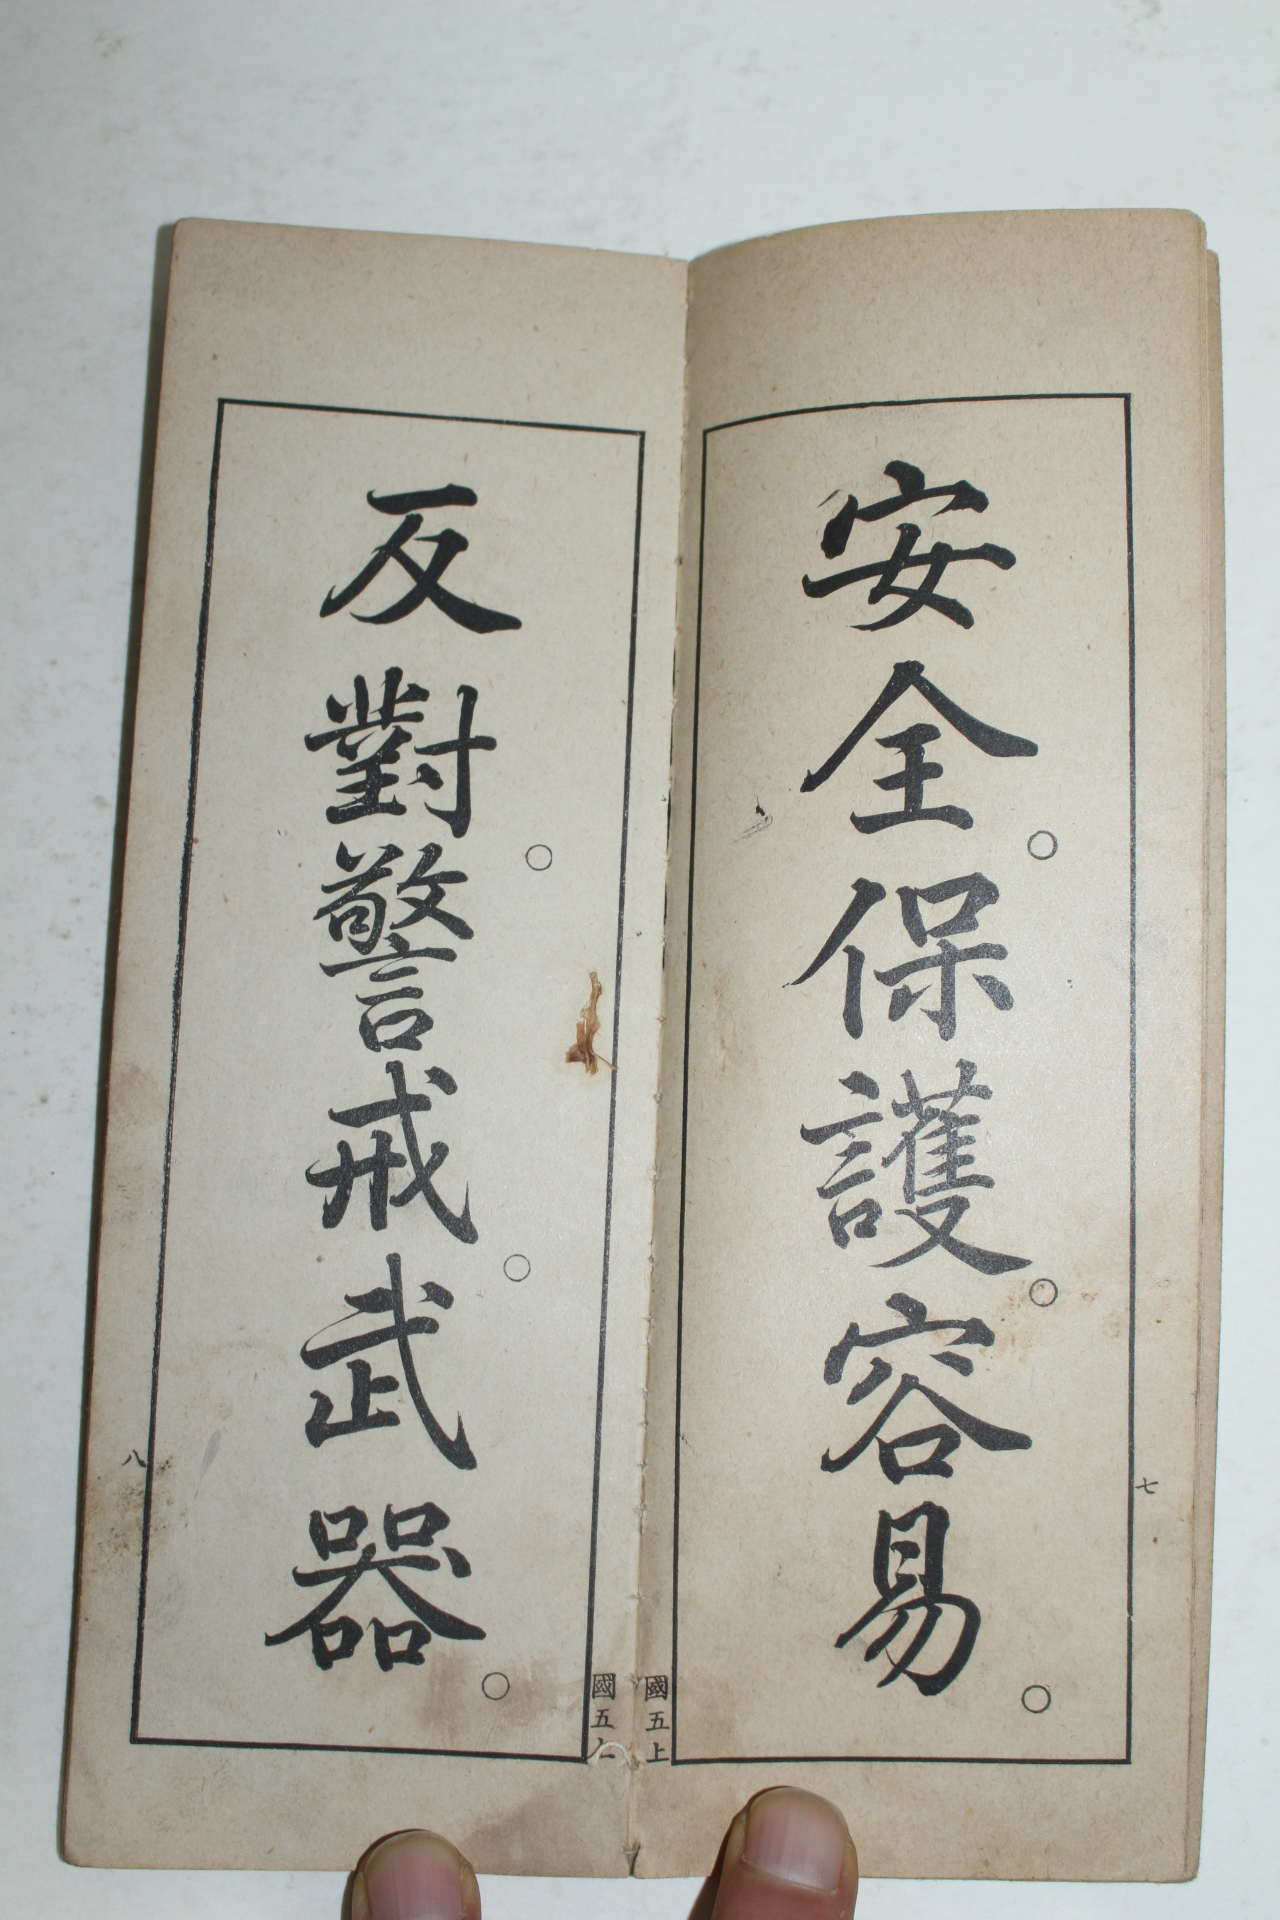 安全。保護。容易。
七
國五上
反對。警戒。武器。
八
國五上